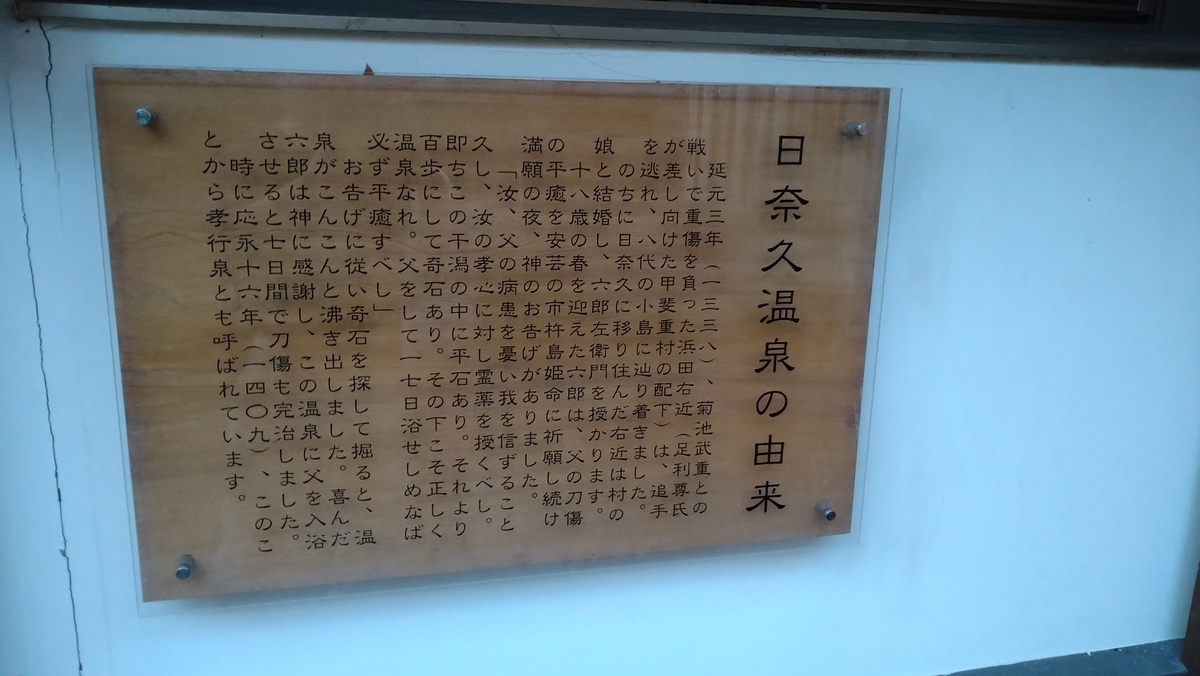 日奈久温泉の由来
延元三年（一三三八）、菊池武重との
戦いで重傷を負った浜田右近（足利尊氏
が差し向けた甲斐重村の配下）は、追手
を逃れ、八代の小島に辿り着きました。
のちに日奈久に移り住んだ右近は村の
娘と結婚し、六郎左衛門を授かります。
十八歳の春を迎えた六郎は、父の刀傷
の平癒を安芸の市杵島姫命に祈願し続け
満願の夜、神のお告げがありました。
「汝、父の病患を憂い我を信ずること
久し、汝の孝心に対し霊薬を授くべし。
即ちこの干潟の中に平石あり。それより
百歩にして奇石あり。その下こそ正しく
温泉なれ。父をして一七日浴せしめなば
必ず平癒すべし」
お告げに従い奇石を探して掘ると、温
泉がこんこんと沸き出しました。喜んだ
六郎は神に感謝し、この温泉に父を入浴
させると七日間で刀傷も完治しました。
時に応永十六年（一四〇九）、このこ
とから孝行泉とも呼ばれています。